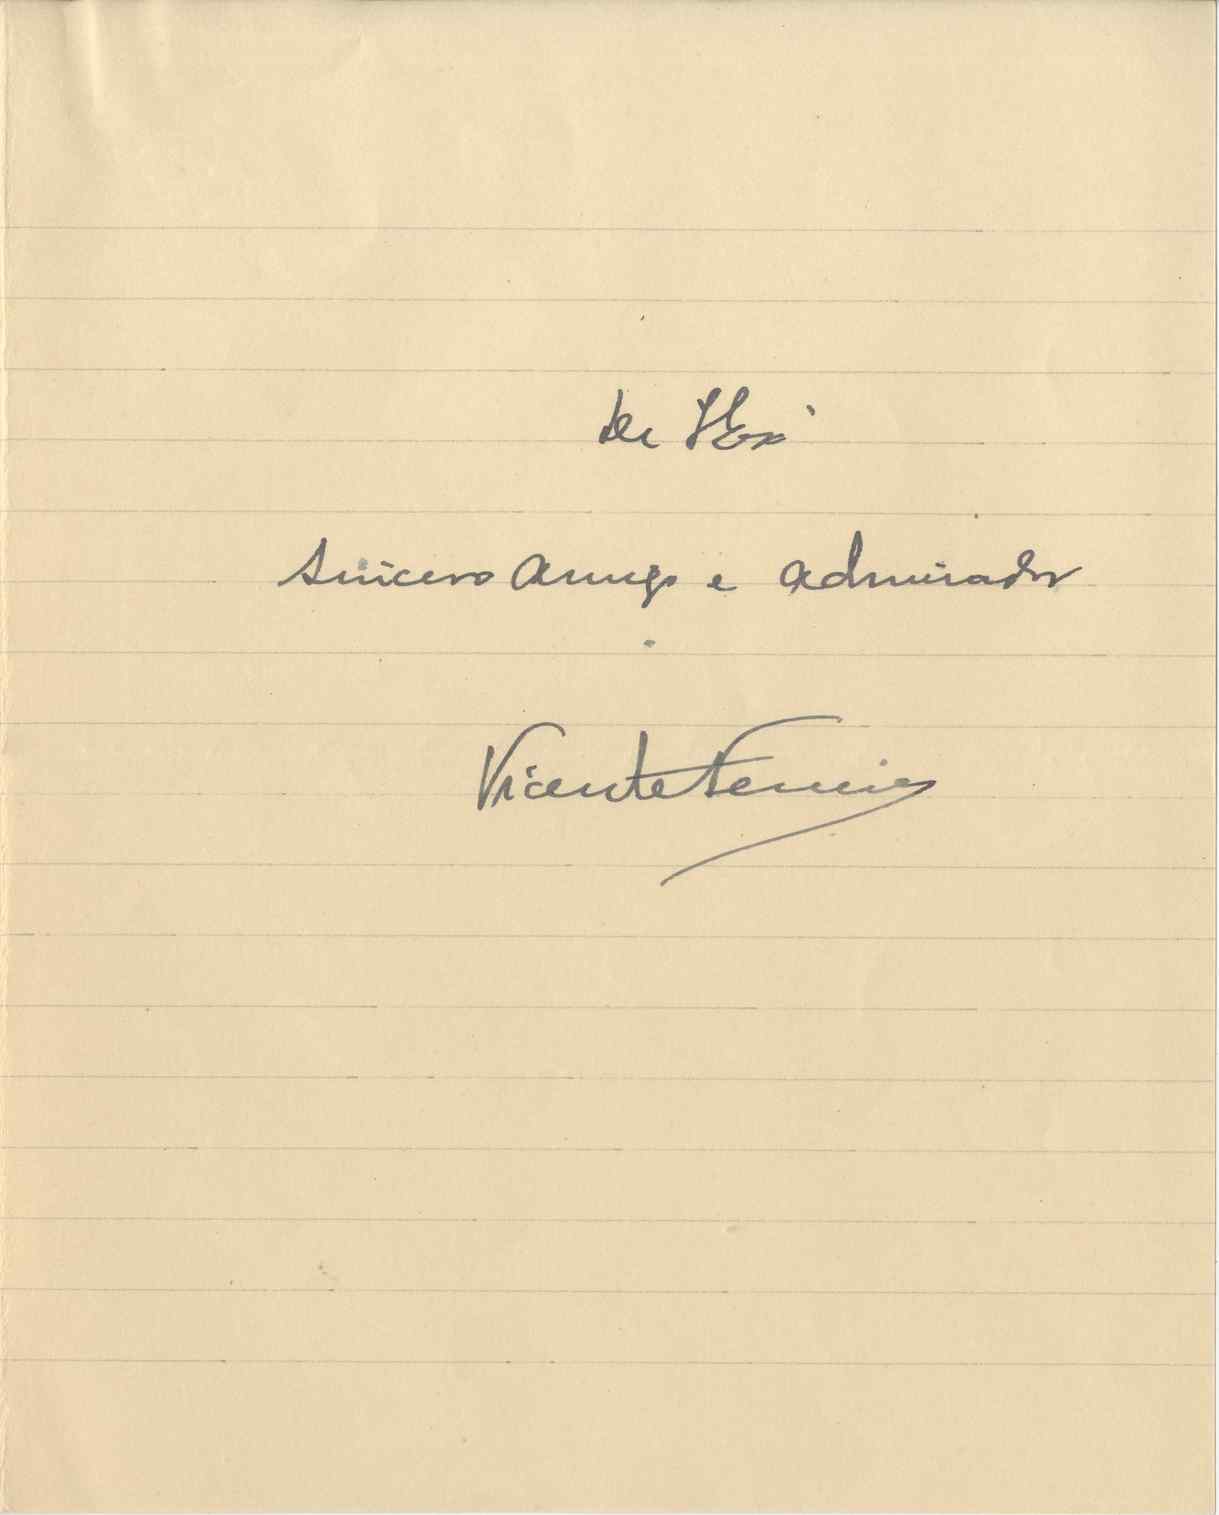 De V. Exª
sincero amigo e admirador
Vicente